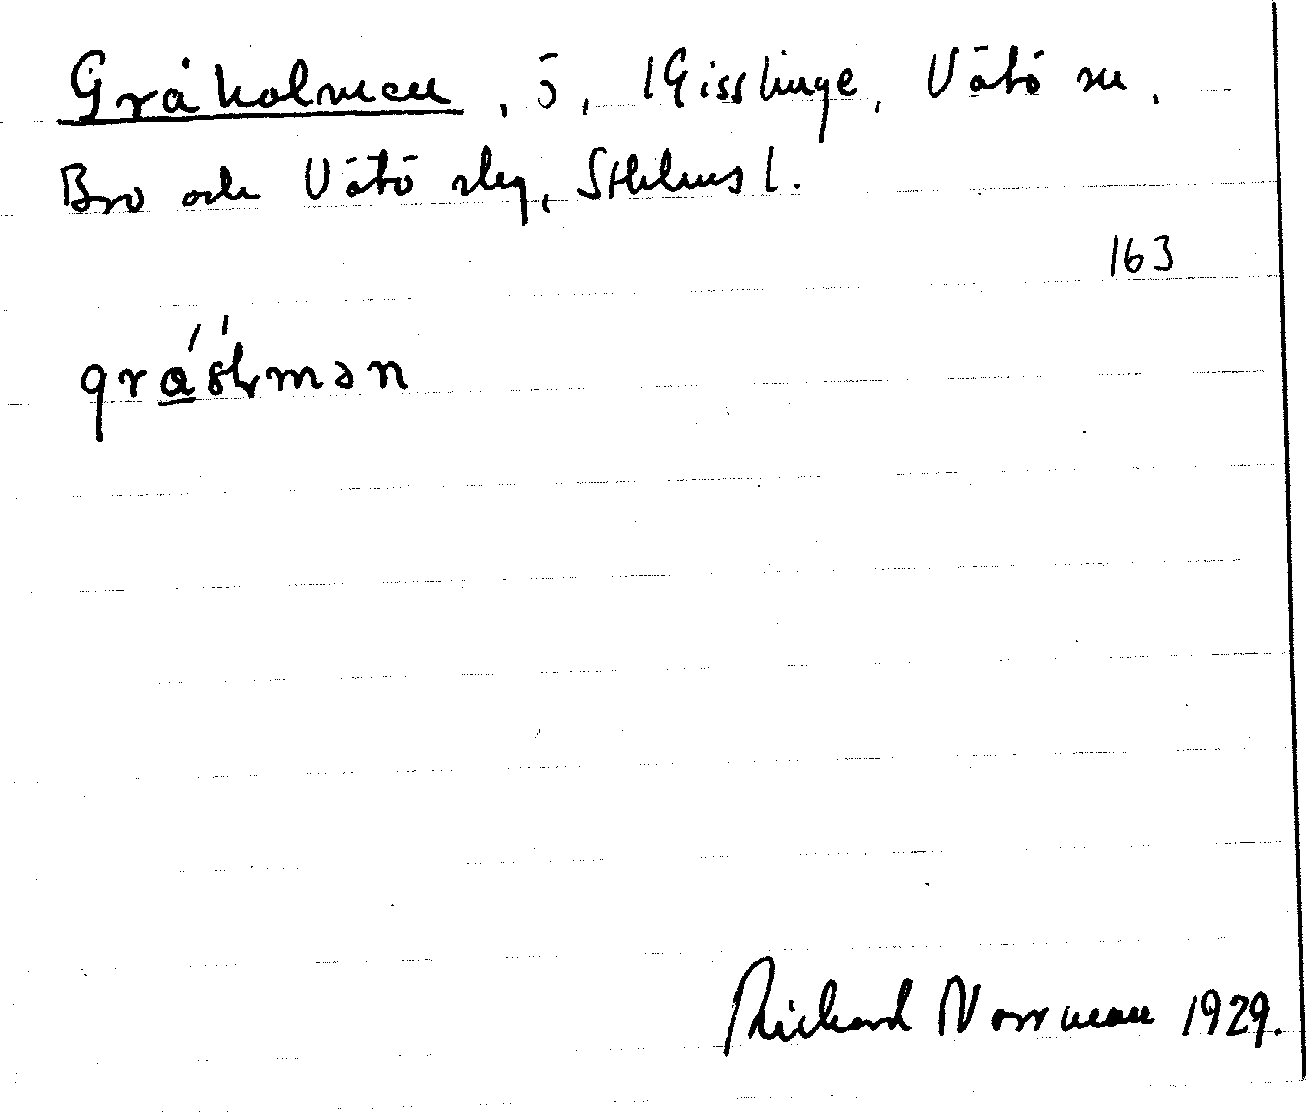 Gråholmen, ö, Gisslinge, Vätö sn,
Bro och Vätö slg, Sthlms l.
163
Richard Norrman 1929.